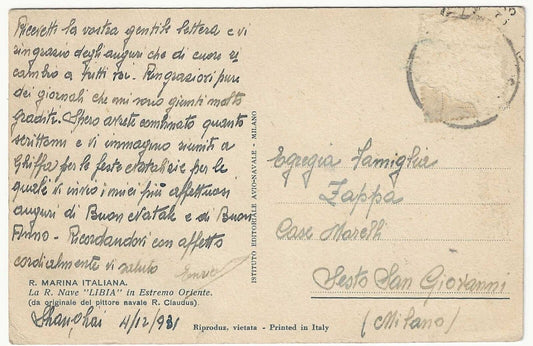 Ricevetti la vostra gentile lettera e vi
ringrazio degli auguri che di cuore ri
cambio a tutti voi. Ringraziovi pure
dei giornali che mi sono giunti molto
graditi. Spero avrete combinato quanto
scrittomi e vi immagino riuniti a
Ghiffa per le feste Natalizie per le
quali vi invio i miei più affettuosi
auguri di Buon Natale e di Buon
Anno - Ricordandovi con affetto
cordialmente vi saluto
R. MARINA ITALIANA.
La R. Nave "LIBIA" in Estremo Oriente.
(da originale del pittore navale R. Claudus).
Shanghai 4/12/931
ISTITUTO EDITORIALE AVIONNAVALE - MILANO
Egregia Famiglia
Zappa
Case Marelli
Sesto San Giovanni
(Milano)
Riproduz. vietata - Printed in Italy